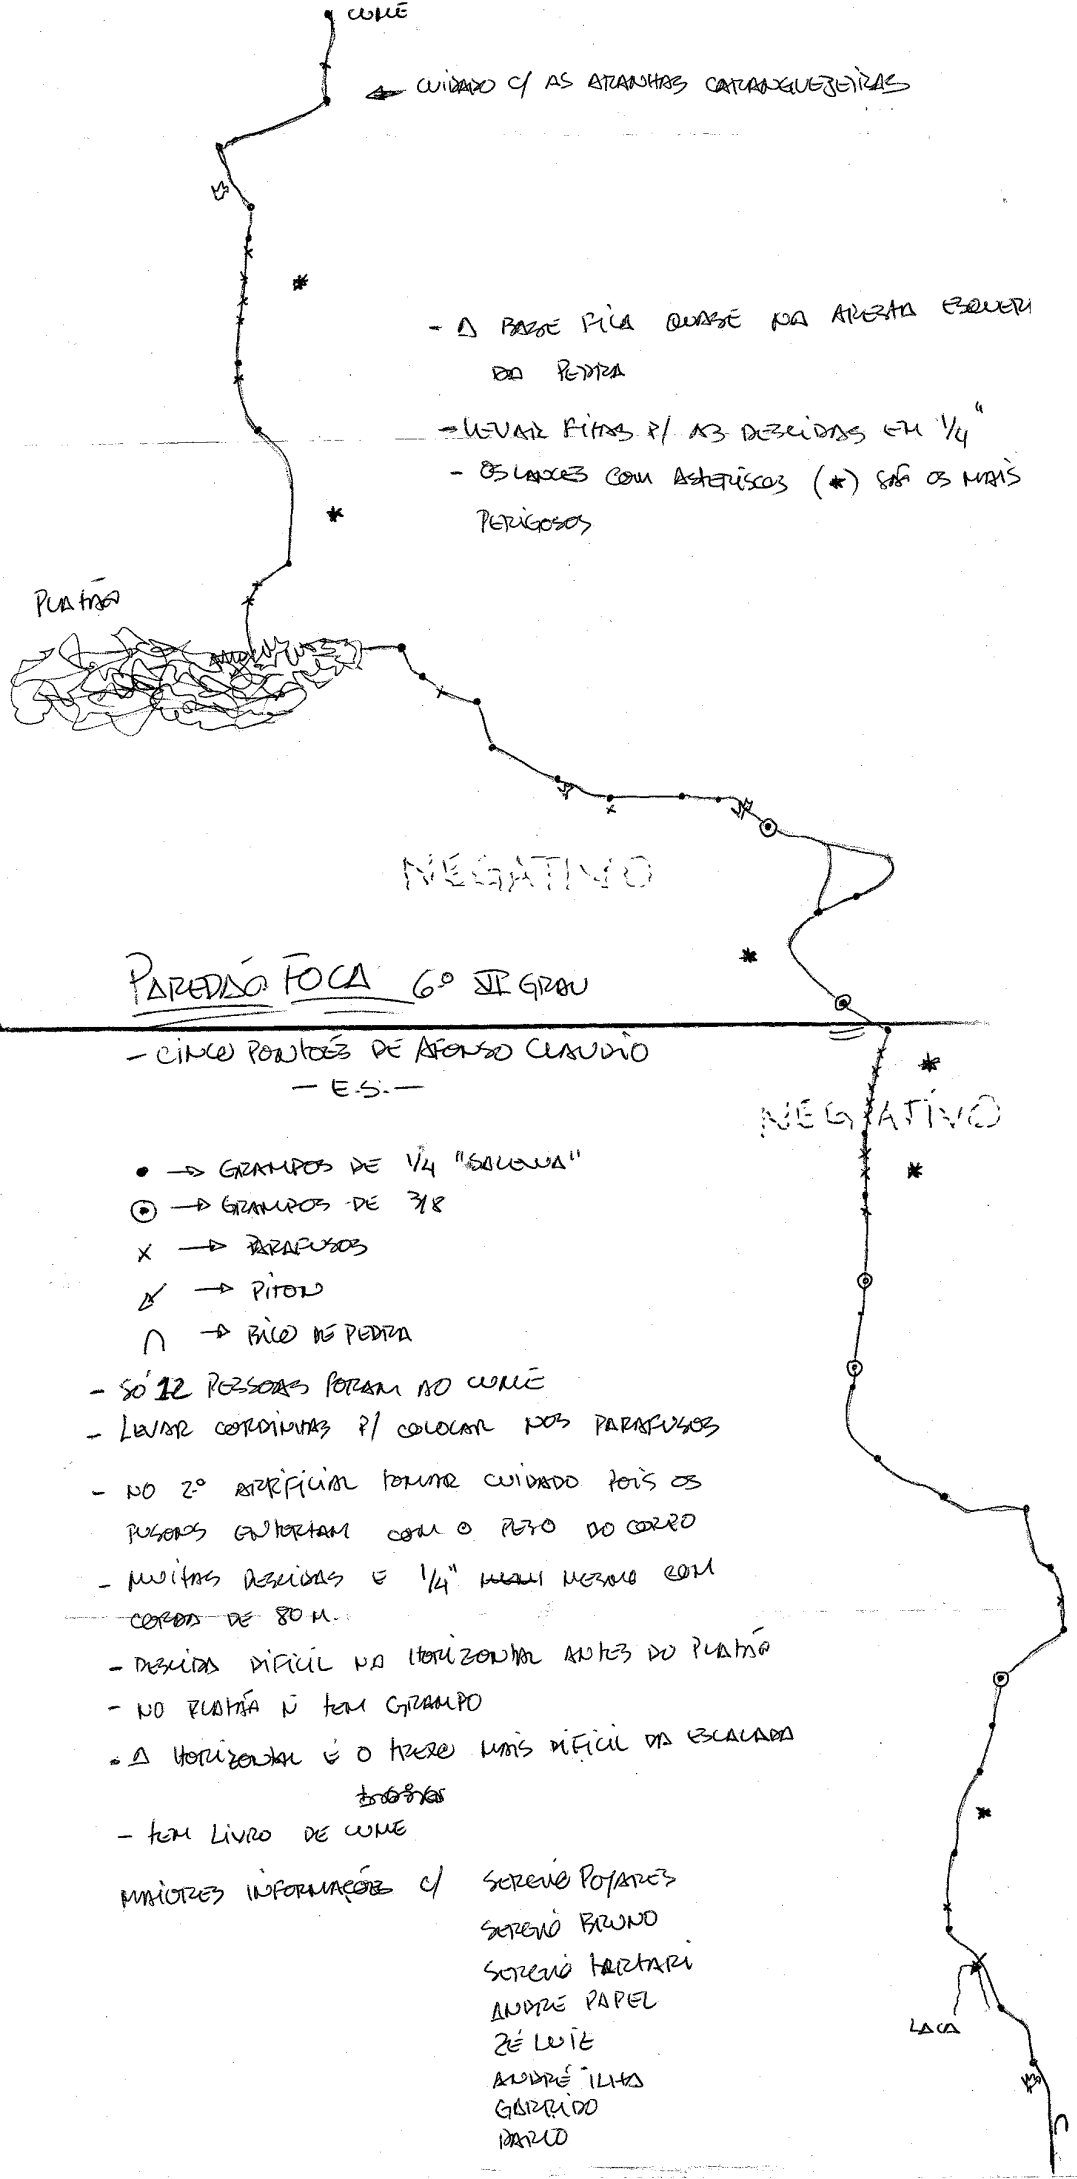 CUME
CUIDADO C/ AS ARANHAS CARANGUEJEIRAS
- A BASE FICA QUASE NA ARESTA ESQUER
DA PEDRA
- LEVAR FITAS P/ AS DESCIDAS EM 1/4"
- OS LANCES COM ASTERISCOS (*) SÃO OS MAIS
PERIGOSOS
PLATÃO
NEGATIVO
PAREDÃO FOCA 6º VI GRAU
- CINCO PONTÕES DE AFONSO CLAUDIO
- E.S. -
NEGATIVO
● → GRAMPOS DE 1/4 "GALENA"
⊙ → GRAMPOS DE 3/8
x → PARAFUSOS
→ PITON
∩ → BICO DE PEDRA
- SÓ 12 PESSOAS FORAM AO CUME
- LEVAR CORDINHAS P/ COLOCAR NOS PARAFUSOS
- NO 2º ARTIFICIAL TOMAR CUIDADO POIS OS
ENTORTAM COM O PESO DO CORPO
- MUITAS DESCIDAS E 1/4" MESMO COM
CORDA DE 80 M.
- DESCIDA DIFICIL NA HORIZONTAL ANTES DO PLATÃO
- NO PLATÃO Ñ TEM GRAMPO
- A HORIZONTAL É O TREXO MAIS DIFICIL DA ESCALADA
- TEM LIVRO DE CUME
MAIORES INFORMAÇÕES C/ SERGIO POYARES
SERGIO BRUNO
SERGIO TARTARI
ANDRE PAPEL
ZÉ LUIZ
ANDRÉ ILHA
GARRIDO
DARIO
LACA